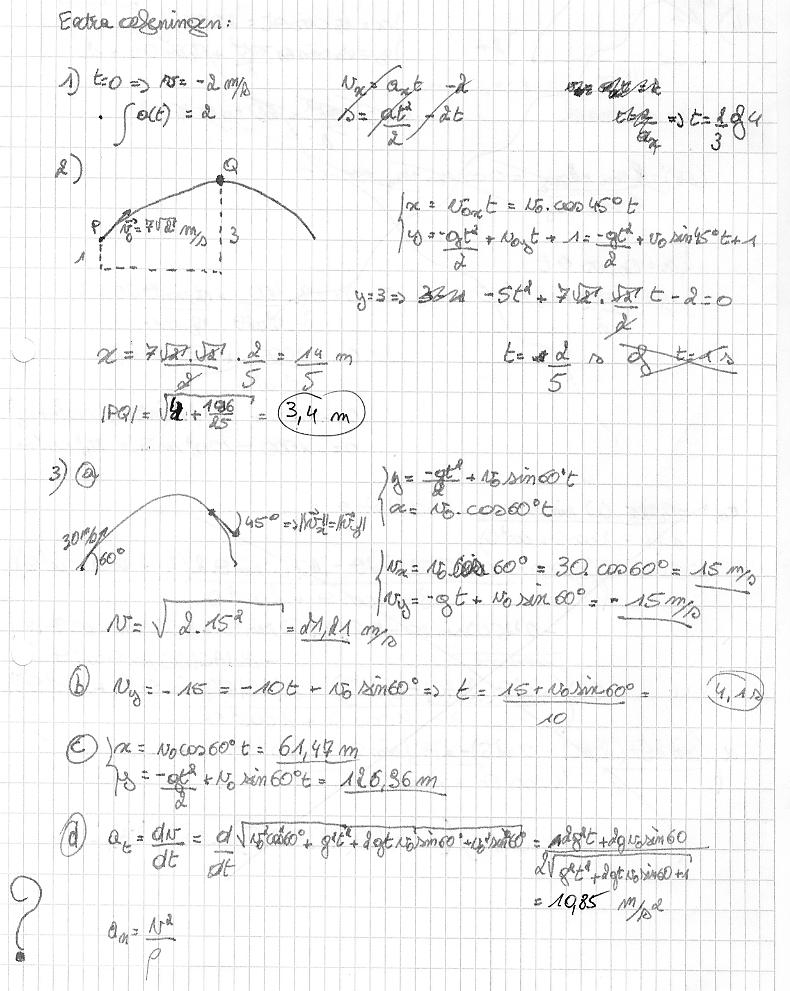 Extra oefeningen:
1) t=0 => v = -2 m/s
vₓ = aₓt - 2
∫a(t) = 2
s = at²/2 - 2t
=> t = 2/3 of 4
2)
Q
P
v₀ = 7√2 m/s
3
1
x = v₀ₓt = v₀.cos45°t
y = -gt²/2 + v₀yt + 1 = -gt²/2 + v₀ sin45°t + 1
y=3 => -5t² + 7√2.√2/2 t - 2 = 0
x = 7√2.√2/2 . 2/5 = 14/5 m
t = 2/5 s of t = 1 s
|PQ| = √4 + 196/25 = 3,4 m
3) a
y = -gt²/2 + v₀ sin60°t
x = v₀.cos60°t
45° => ||vₓ|| = ||vy||
30 m/s
60°
vₓ = v₀ cos 60° = 30.cos60° = 15 m/s
vy = -gt + v₀ sin60° = -15 m/s
v = √2.15² = 21,21 m/s
b vy = -15 = -10t + v₀ sin60° => t = 15 + v₀ sin60°/10 = 4,1 s
c x = v₀cos60°t = 61,47 m
y = -gt²/2 + v₀ sin60°t = 126,36 m
d aₜ = dv/dt = d/dt √v₀²cos²60° + g²t² + 2gt v₀ sin60° + v₀² sin²60° = 2g²t + 2gv₀sin60/2√g²t² + 2gt v₀ sin60 + 1
= 10,85 m/s²
?
aₙ = v²/ρ